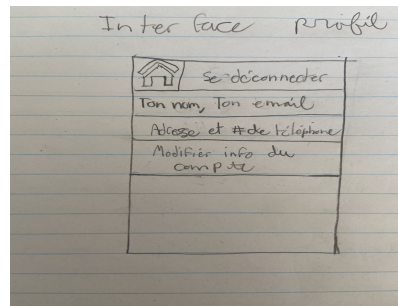 Interface profil
Se déconnecter
Ton nom, Ton email
Adresse et # de téléphone
Modifier info du
compte